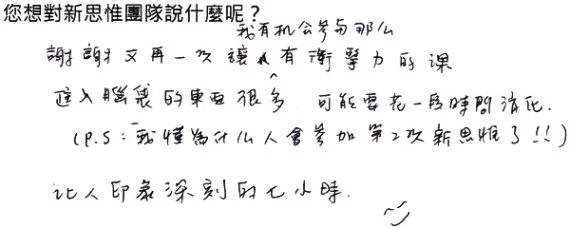 您想對新思惟團隊說什麼呢？
我有机会參与那么
謝謝又再一次讓有衝擊力的課
進入腦袋的東西很多，可能要花一段時間消化.
(P.S：我懂為什么人會參加第2次新思惟了!!)
让人印象深刻的七小時.